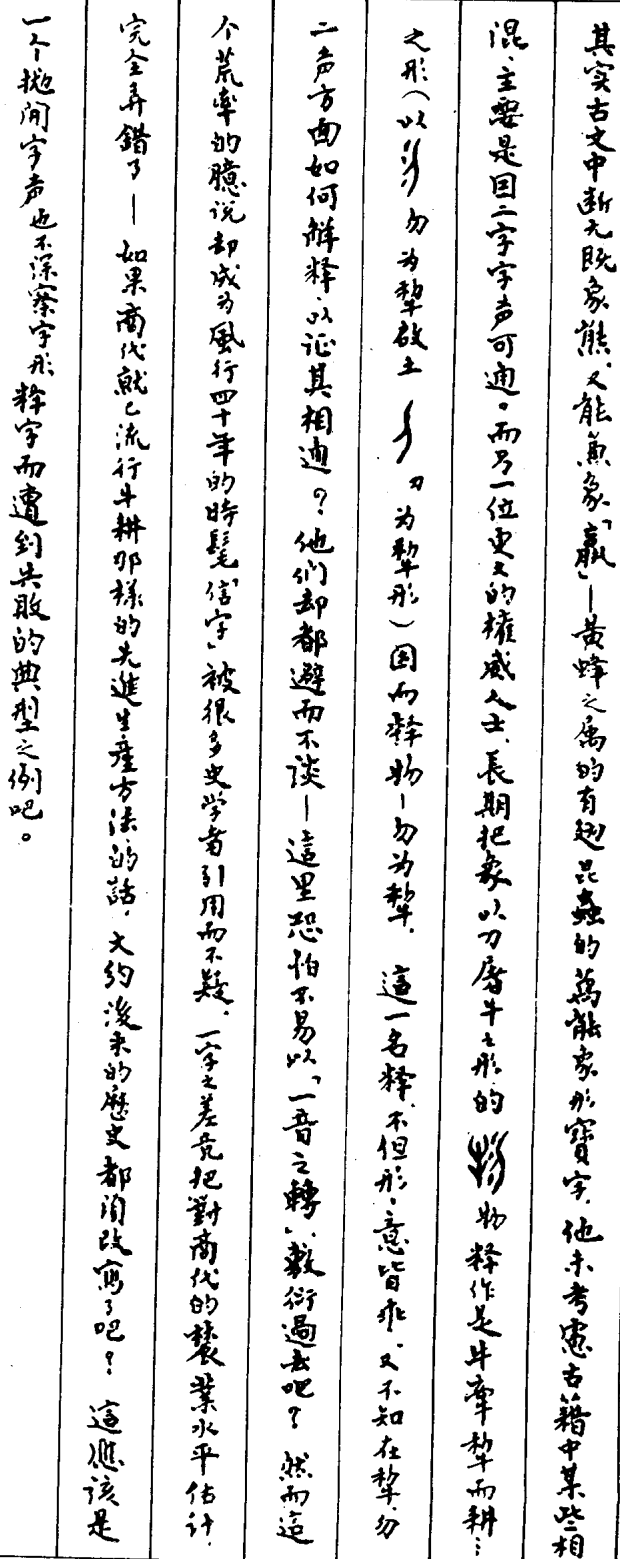 其实古文中断无既象熊、又能兼象「蠃」—黄蜂之属的有翅昆蟲的萬能象形寶字。他未考慮古籍中某些相
混、主要是因二字字声可通。而另一位更大的權威人士、長期把象以刀屠牛之形的 物釋作是牛牽犂而耕：
之形（以 勿为犂啟土 刀为犂形）因而釋物—勿为犂。這一名釋、不但形、意皆乖、又不知在犂、勿
二声方面如何解释、以证其相通？他们却都避而不談—這里恐怕不易以「一音之轉」、敷衍過去吧？然而這
个荒率的臆说却成为風行四十年的時髦「信字」被很多史学者引用而不疑、一字之差竟把對商代的農業水平估计、
完全弄錯了—如果商代就已流行牛耕那樣的先進生產方法的話、大约後来的歷史都須改寫了吧？這應该是
一个抛開字声也不深察字形釋字而遭到失敗的典型之例吧。